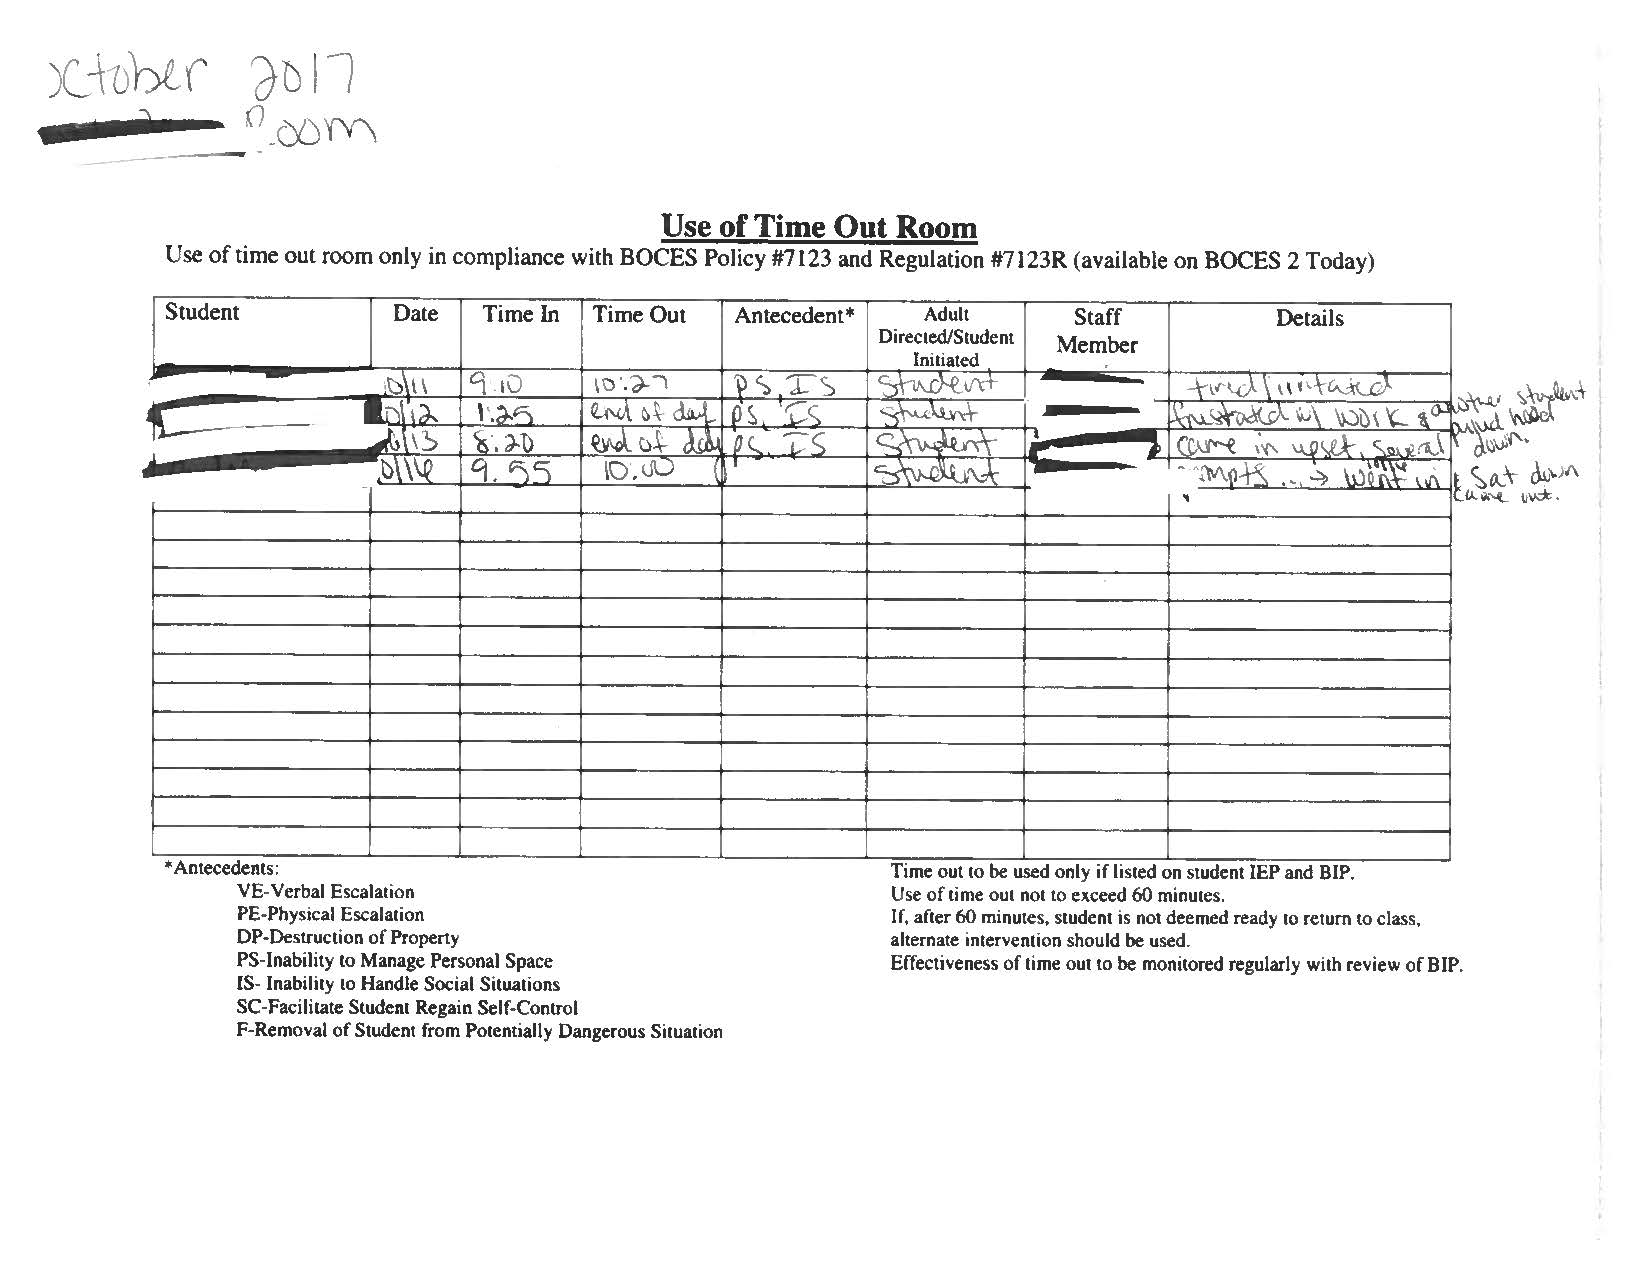 October 2017
Room
Use of Time Out Room
Use of time out room only in compliance with BOCES Policy #7123 and Regulation #7123R (available on BOCES 2 Today)
Student Date Time In Time Out Antecedent* Adult Directed/Student Initiated Staff Member Details
10/11 9:10 10:27 PS, IS Student tired/irritated
10/12 1:25 end of day PS, IS Student frustrated w/ work & another student
head down.
10/13 8:20 end of day PS, IS Student came in upset, several
10/16 9:55 10:00 Student → went in & sat down
came out.
*Antecedents:
VE-Verbal Escalation
PE-Physical Escalation
DP-Destruction of Property
PS-Inability to Manage Personal Space
IS- Inability to Handle Social Situations
SC-Facilitate Student Regain Self-Control
F-Removal of Student from Potentially Dangerous Situation
Time out to be used only if listed on student IEP and BIP.
Use of time out not to exceed 60 minutes.
If, after 60 minutes, student is not deemed ready to return to class,
alternate intervention should be used.
Effectiveness of time out to be monitored regularly with review of BIP.